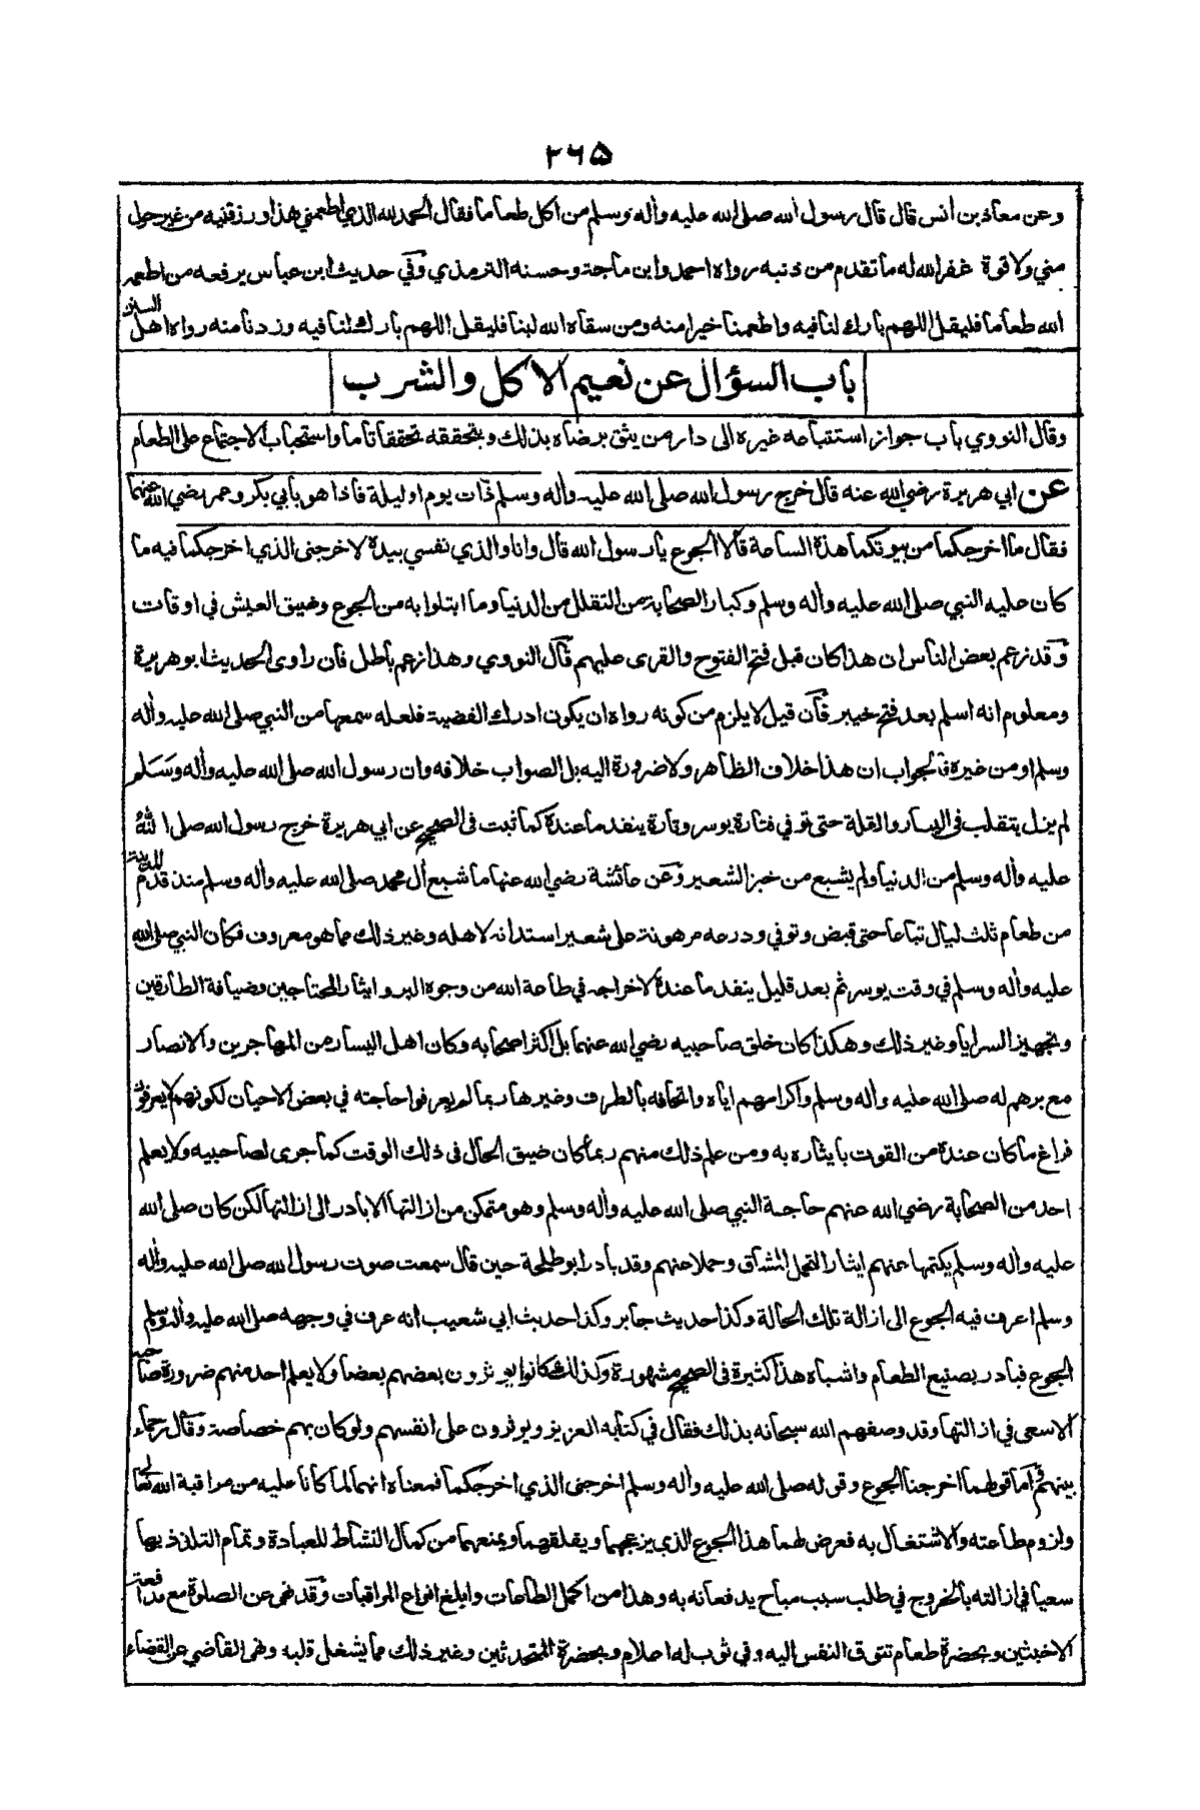 ٢٦٥
وعن معاذ بن انس قال قال رسول الله صلى الله عليه وأله وسلم من اكل طعاما فقال الحمد لله الذي اطعمني هذا ورزقنيه من غير حول
مني ولا قوة غفر الله له ما تقدم من ذنبه رواه احمد وابن ماجة وحسنه الترمذي وفي حديث ابن عباس يرفعه من اطعمه
الله طعاما فليقل اللهم بارك لنا فيه واطعمنا خيرا منه ومن سقاه الله لبنا فليقل اللهم بارك لنا فيه وزدنا منه رواه اهل السنن
باب السؤال عن نعيم الاكل والشرب
وقال النووي باب جواز استتباعه غيره الى دار من يثق برضاه بذلك ويتحققه تحققا تاما واستحباب الاجتماع على الطعام
عن ابي هريرة رضي الله عنه قال خرج رسول الله صلى الله عليه وأله وسلم ذات يوم او ليلة فاذا هو بابي بكر وعمر رضي الله عنهما
فقال ما اخرجكما من بيوتكما هذة الساعة قالا الجوع يا رسول الله قال وانا والذي نفسي بيدة لاخرجني الذي اخرجكما فيه ما
كان عليه النبي صلى الله عليه وأله وسلم وكبار الصحابة من التقلل من الدنيا وما ابتلوا به من الجوع وضيق العيش في اوقات
وقد زعم بعض الناس ان هذا كان قبل فتح الفتوح والقرى عليهم قال النووي وهذا زعم باطل فان راوى الحديث ابو هريرة
ومعلوم انه اسلم بعد فتح خيبر فان قيل لا يلزم من كونه رواه ان يكون ادرك القضية فلعله سمعها من النبي صلى الله عليه وأله
وسلم او من غيرة فالجواب ان هذا خلاف الظاهر ولا ضرورة اليه بل الصواب خلافه وان رسول الله صلى الله عليه وأله وسلم
لم يزل يتقلب في اليسار والقلة حتى توفي فتارة يوسر وتارة ينفد ما عندة كما ثبت في الصحيح عن ابي هريرة خرج رسول الله صلى الله
عليه وأله وسلم من الدنيا ولم يشبع من خبز الشعير وعن عائشة رضي الله عنها ما شبع أل محمد صلى الله عليه وأله وسلم منذ قدم المدينة
من طعام ثلث ليال تباعا حتى قبض وتوفي ودرعه مرهونة على شعير استدانه لاهله وغير ذلك مما هو معروف فكان النبي صلى الله
عليه وأله وسلم في وقت يوسر ثم بعد قليل ينفد ما عندة لاخراجه في طاعة الله من وجوه البر وايثار المحتاجين وضيافة الطارقين
وتجهيز السرايا وغير ذلك وهكذا كان خلق صاحبيه رضي الله عنهما بل اكثر اصحابه وكان اهل اليسار من المهاجرين والانصار
مع برهم له صلى الله عليه وأله وسلم واكرامهم اياه واتحافه بالطرف وغيرها ربما لم يعرفوا حاجته في بعض الاحيان لكونهم لا يعرفون
فراغ ما كان عندة من القوت بايثاره به ومن علم ذلك منهم ربما كان ضيق الحال في ذلك الوقت كما جرى لصاحبيه ولا يعلم
احد من الصحابة رضي الله عنهم حاجة النبي صلى الله عليه وأله وسلم وهو متمكن من ازالتها الا بادر الى ازالتها لكن كان صلى الله
عليه وأله وسلم يكتمها عنهم ايثارا لتحمل المشاق وحملا عنهم وقد بادر ابو طلحة حين قال سمعت صوت رسول الله صلى الله عليه وأله
وسلم اعرف فيه الجوع الى ازالة تلك الحالة وكذا حديث جابر وكذا حديث ابي شعيب انه عرف في وجهه صلى الله عليه وأله وسلم
الجوع فبادر بصنيع الطعام واشباه هذا كثيرة في الصحيح مشهورة وكذلك كانوا يوثرون بعضهم بعضا ولا يعلم احد منهم ضرورة صاحبه
الا سعى في ازالتها وقد وصفهم الله سبحانه بذلك فقال في كتابه العزيز ويوثرون على انفسهم ولو كان بهم خصاصة وقال رحماء
بينهم واما قولهما اخرجنا الجوع وقوله صلى الله عليه وأله وسلم اخرجني الذي اخرجكما فمعناه انهما لما كانا عليه من مراقبة الله تعالى
ولزوم طاعته والاشتغال به فعرض لهما هذا الجوع الذي يزعجهما ويقلقهما ويمنعهما من كمال النشاط للعبادة وتمام التلذذ بها
سعيا في ازالته بالخروج في طلب سبب مباح يدفعانه به وهذا من اكمل الطاعات وابلغ انواع المراقبات وقد نهى عن الصلوة مع مدافعة
الاخبثين وبحضرة طعام تتوق النفس اليه وفي ثوب له اعلام وبحضرة المتحدثين وغير ذلك مما يشغل قلبه ونهى القاضي عن القضاء